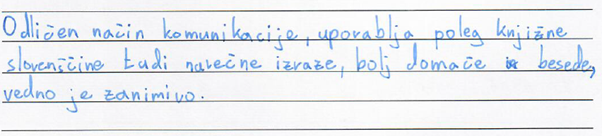 Odličen način komunikacije, uporablja poleg knjižne
slovenščine tudi narečne izraze, bolj domače besede,
vedno je zanimivo.